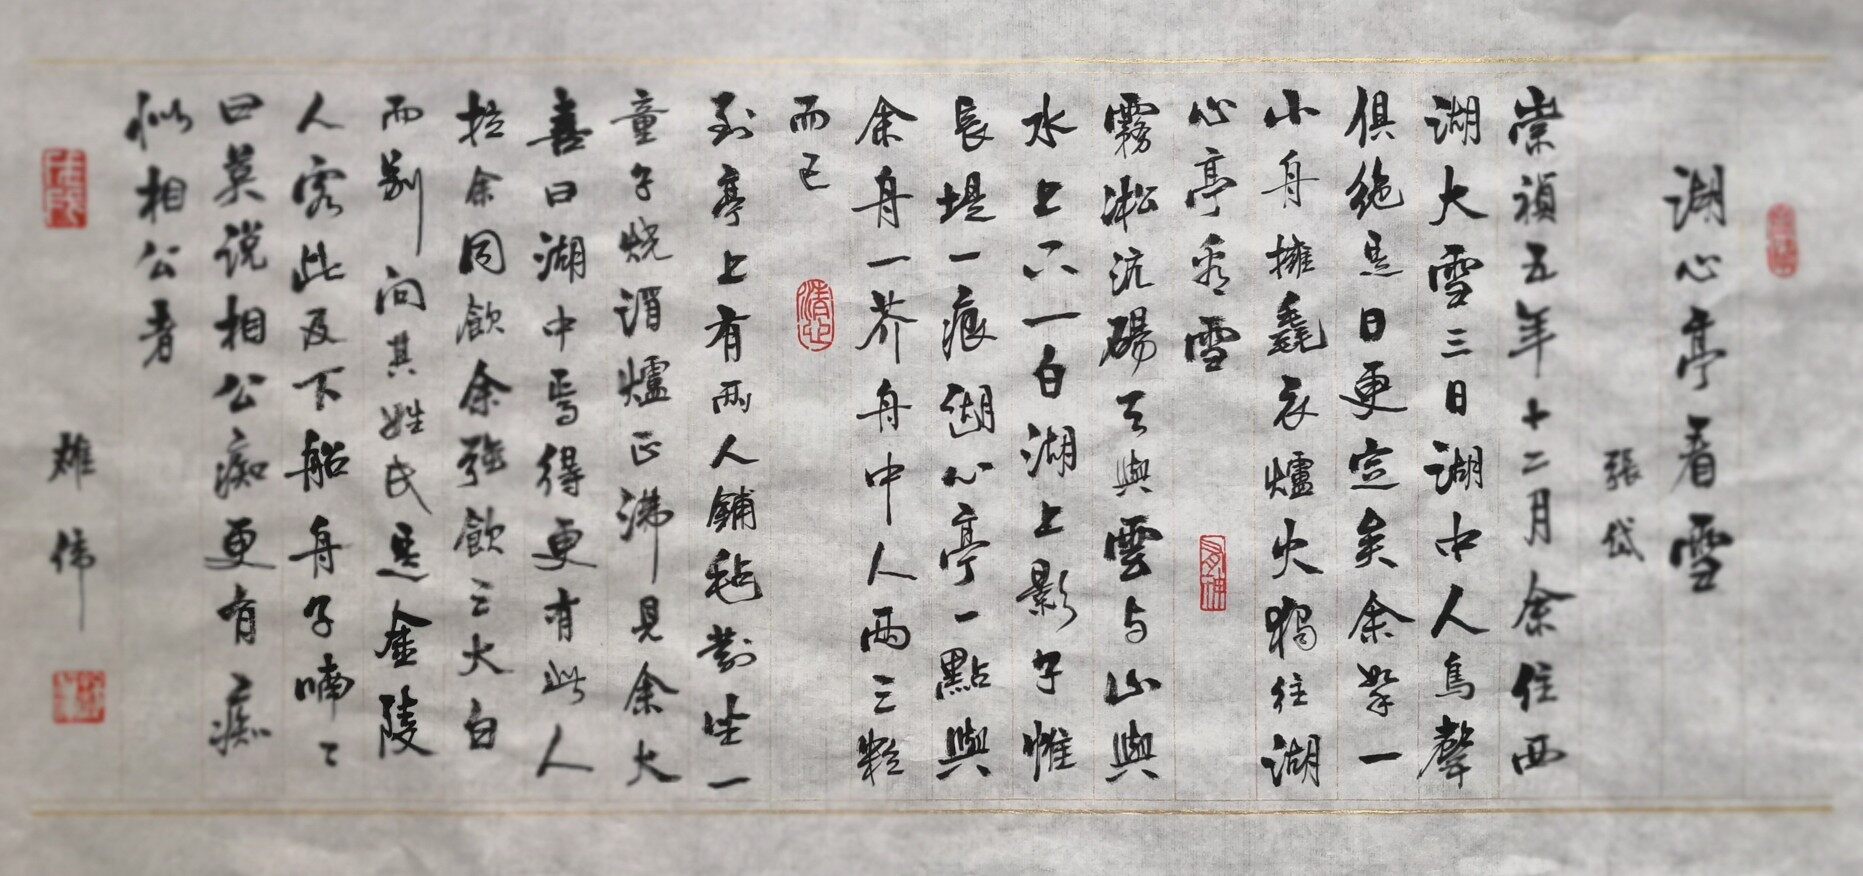 湖心亭看雪
張岱
崇禎五年十二月余住西
湖大雪三日湖中人鳥聲
俱絶是日更定矣余挐一
小舟擁毳衣爐火獨往湖
心亭看雪
霧淞沆碭天與雲與山與
水上下一白湖上影子惟
長堤一痕湖心亭一點與
余舟一芥舟中人兩三粒
而已
到亭上有兩人鋪氈對坐一
童子燒酒爐正沸見余大
喜曰湖中焉得更有此人
拉余同飲余強飲三大白
而别问其姓氏是金陵
人客此及下船舟子喃々
曰莫说相公痴更有痴
似相公者
雄偉